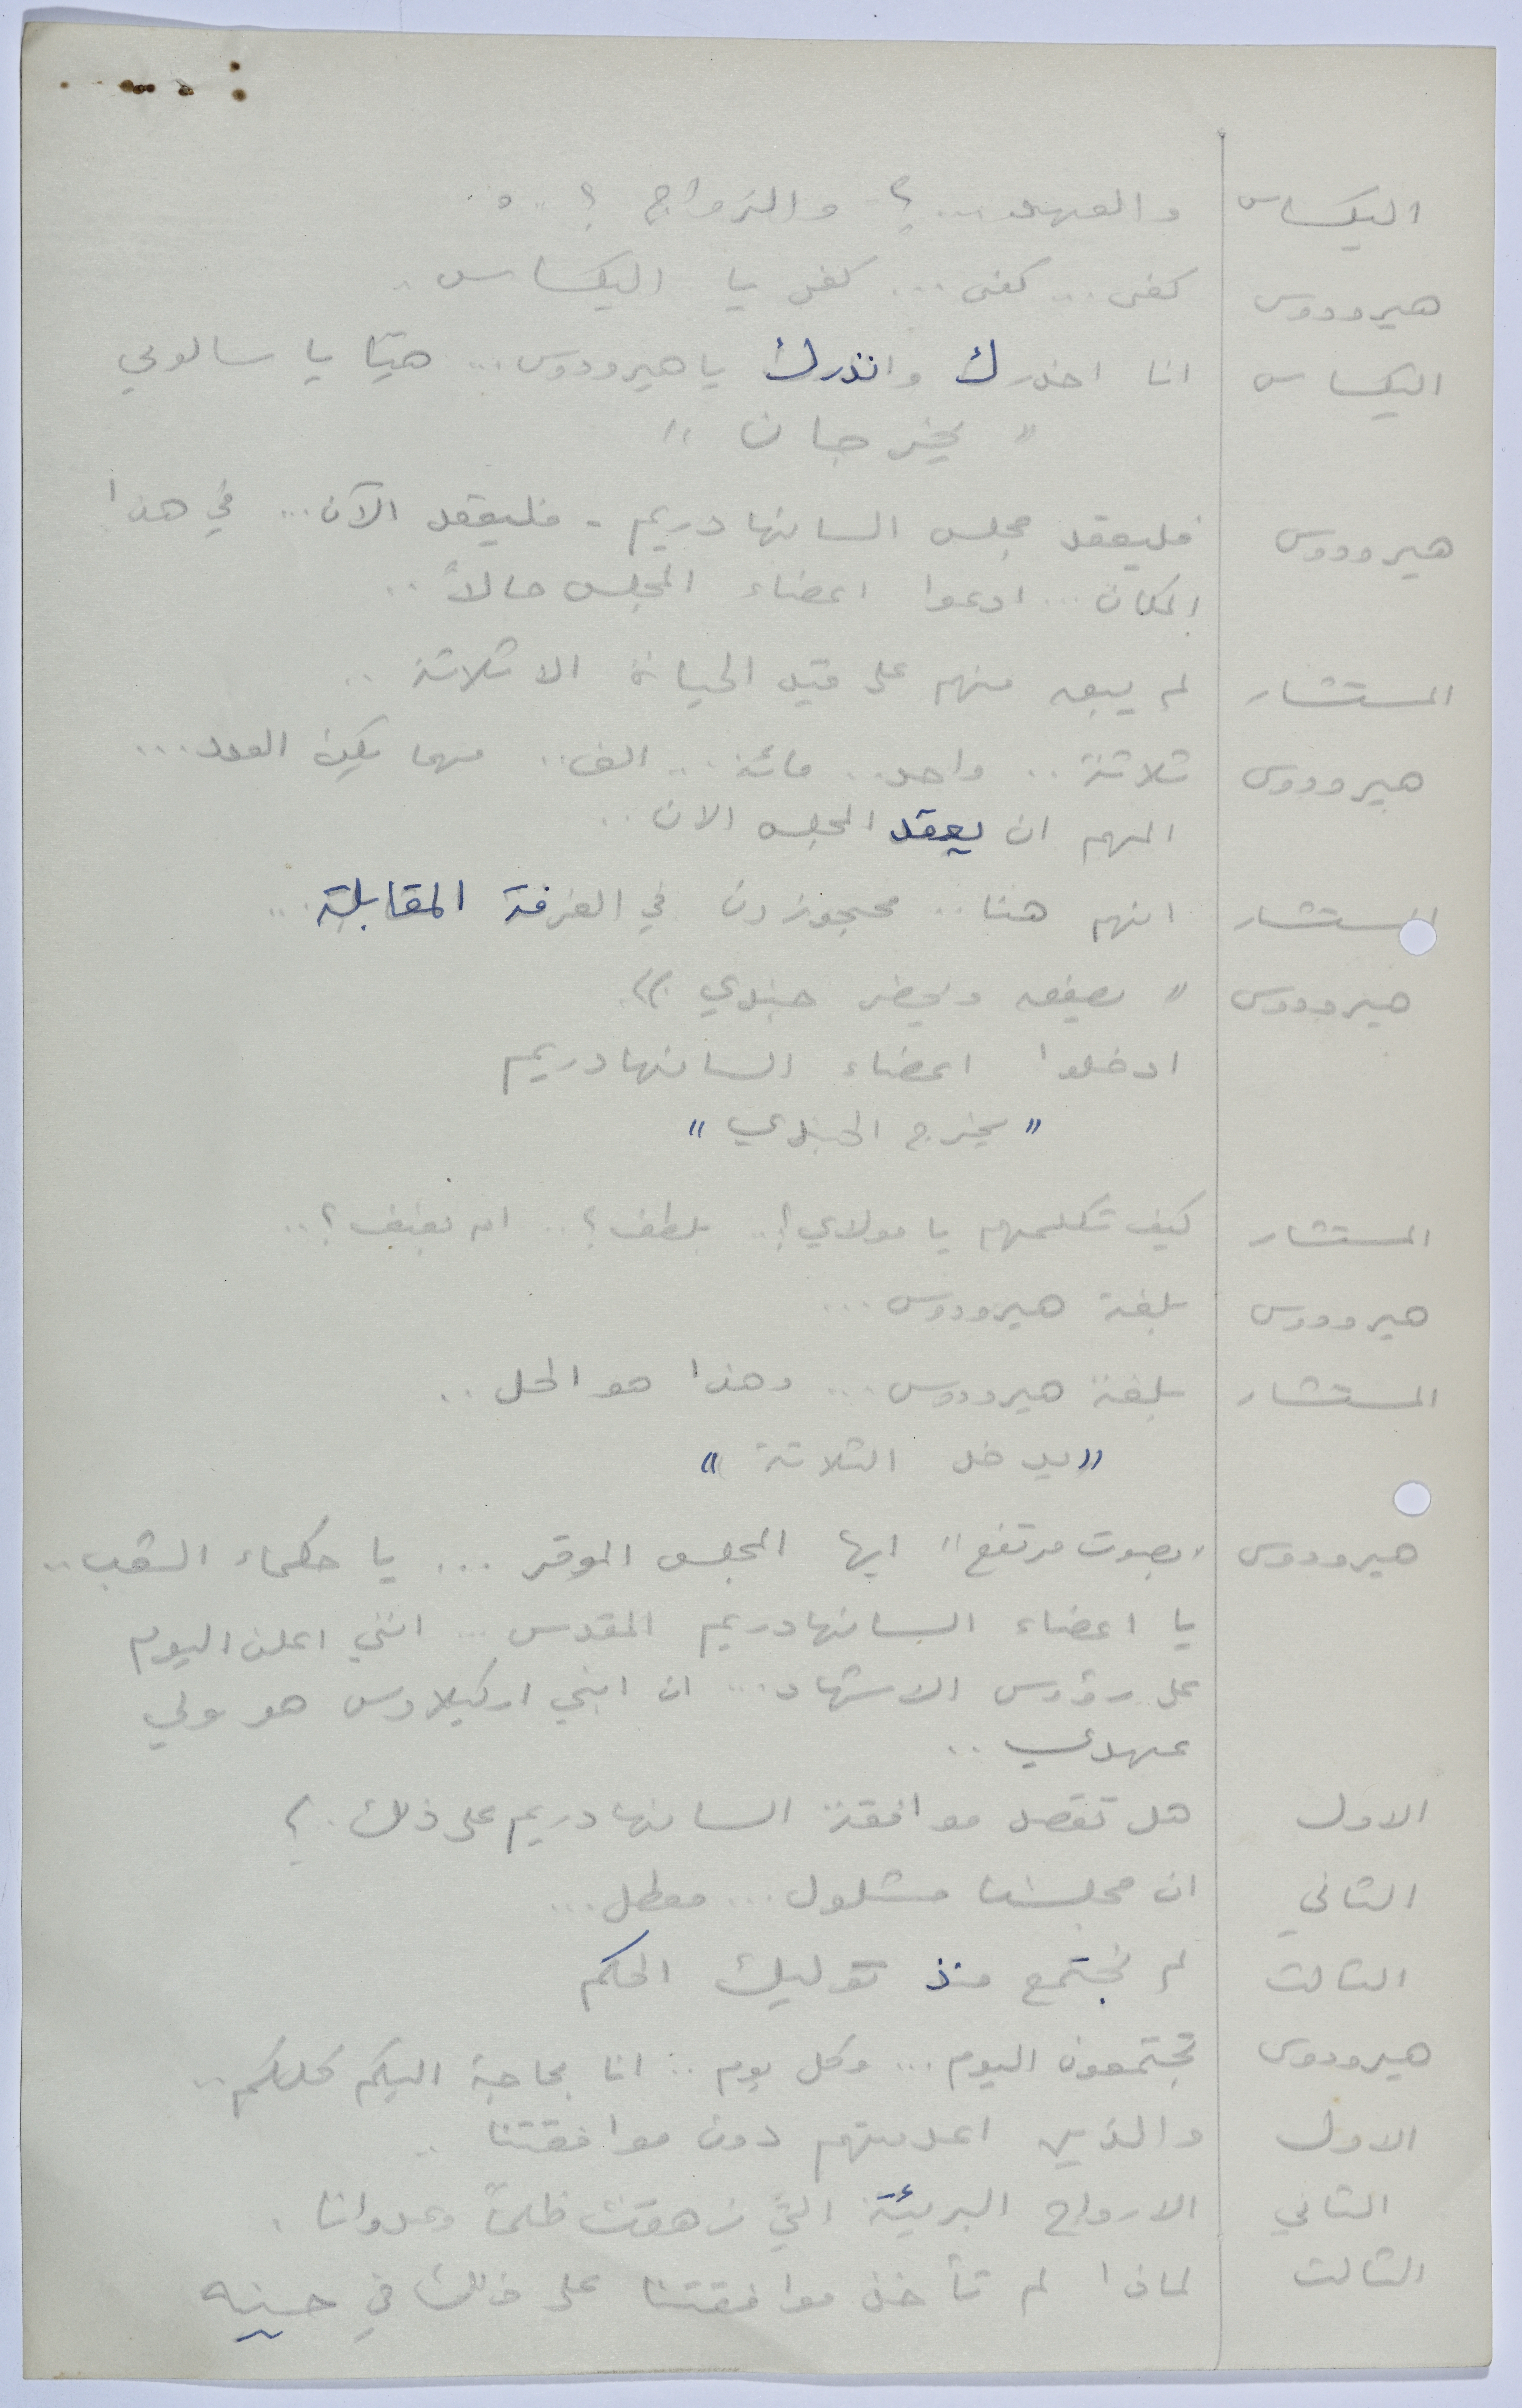 اليكساس والعهد...؟ والزواج ؟..
هيرودوس كفى... كفى... كفى يا اليكساس..
اليكساس انا احذرك وانذرك يا هيرودوس... هيّا يا سالومي
" يخرجان "
هيرودوس فليعقد مجلس السانهادريم - فليعقد الآن... في هذا
المكان... ادعوا اعضاء المجلس حالاً..
المستشار لم يبق منهم على قيد الحياة الا ثلاثة..
هيرودوس ثلاثة.. واحد.. مائة.. الف.. مهما يكن العدد...
المهم ان يعقد المجلس الان..
المستشار انهم هنا.. محجوزون في الغرفة المقابلة..
هيرودوس " يصفق ويحضر جندي "
ادخلوا اعضاء السانهادريم
" يخرج الجندي "
المستشار كيف تكلمهم يا مولاي؟.. بلطف؟.. ام بعنف؟..
هيرودوس بلغة هيرودوس...
المستشار بلغة هيرودوس... وهذا هو الحل..
" يدخل الثلاثة "
هيرودوس "بصوت مرتفع" ايها المجلس الموقر... يا حكماء الشعب..
يا اعضاء السانهادريم المقدس... انني اعلن اليوم
على رؤوس الاشهاد... ان ابني اركيلاوس هو ولي
عهدي..
الاول هل تقصد موافقة السانهادريم على ذلك.؟
الثاني ان مجلسنا مشلول... معطل...
الثالث لم نجتمع منذ توليك الحكم
هيرودوس تجتمعون اليوم... وكل يوم.. انا بحاجة اليكم كلكم..
الاول والذين اعدمتهم دون موافقتنا..
الثاني الارواح البريئة التي زهقت ظلماً وعدوانا.
الثالث لماذا لم تأخذ موافقتنا على ذلك في حينه